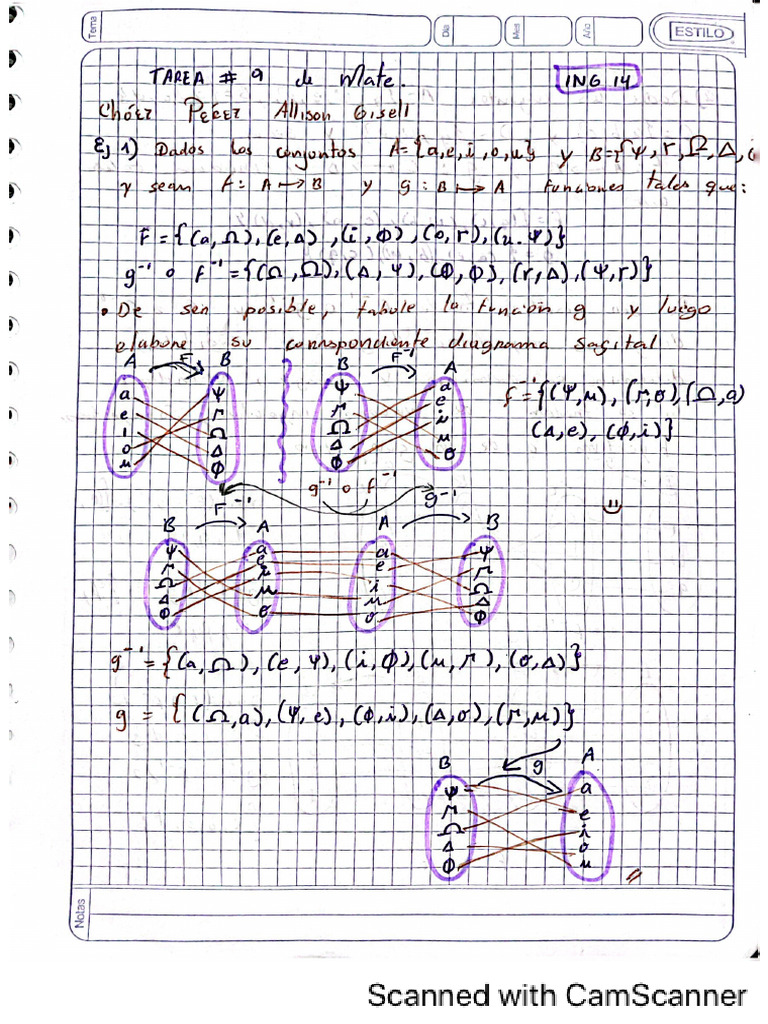 Tema
Día
Mes
Año
ESTILO
TAREA # 9 de Mate.
ING 14
Chóez Pérez Allison Gisell
Ej 1) Dados los conjuntos A={a,e,i,o,u} y B={Ψ,r,Ω,Δ,
y sean f: A→B y g: B→A funciones tales que:
F={(a,Ω),(e,Δ),(i,Φ),(o,r),(u.Ψ)}
g⁻¹ o f⁻¹={(Ω,Ω),(Δ,Ψ),(Φ,Φ),(r,Δ),(Ψ,r)}
• De sen posible, tabule la función g y luego
elabore su correspondiente diagrama sagital
A F B
B F⁻¹ A
a Ψ
e r
i Ω
o Δ
u Φ
Ψ a
r e
Ω i
Δ u
Φ o
f⁻¹={(Ψ,u),(r,o),(Ω,a)
(Δ,e),(Φ,i)}
g⁻¹ o f⁻¹
B F⁻¹ A
A g⁻¹ B
Ψ a a Ψ
r e e r
Ω i i Ω
Δ u u Δ
Φ o o Φ
g⁻¹={(a,Ω),(e,Ψ),(i,Φ),(u,r),(o,Δ)}
g = {(Ω,a),(Ψ,e),(Φ,i),(Δ,o),(r,u)}
B g A
Ψ a
r e
Ω i
Δ o
Φ u
Notas
Scanned with CamScanner